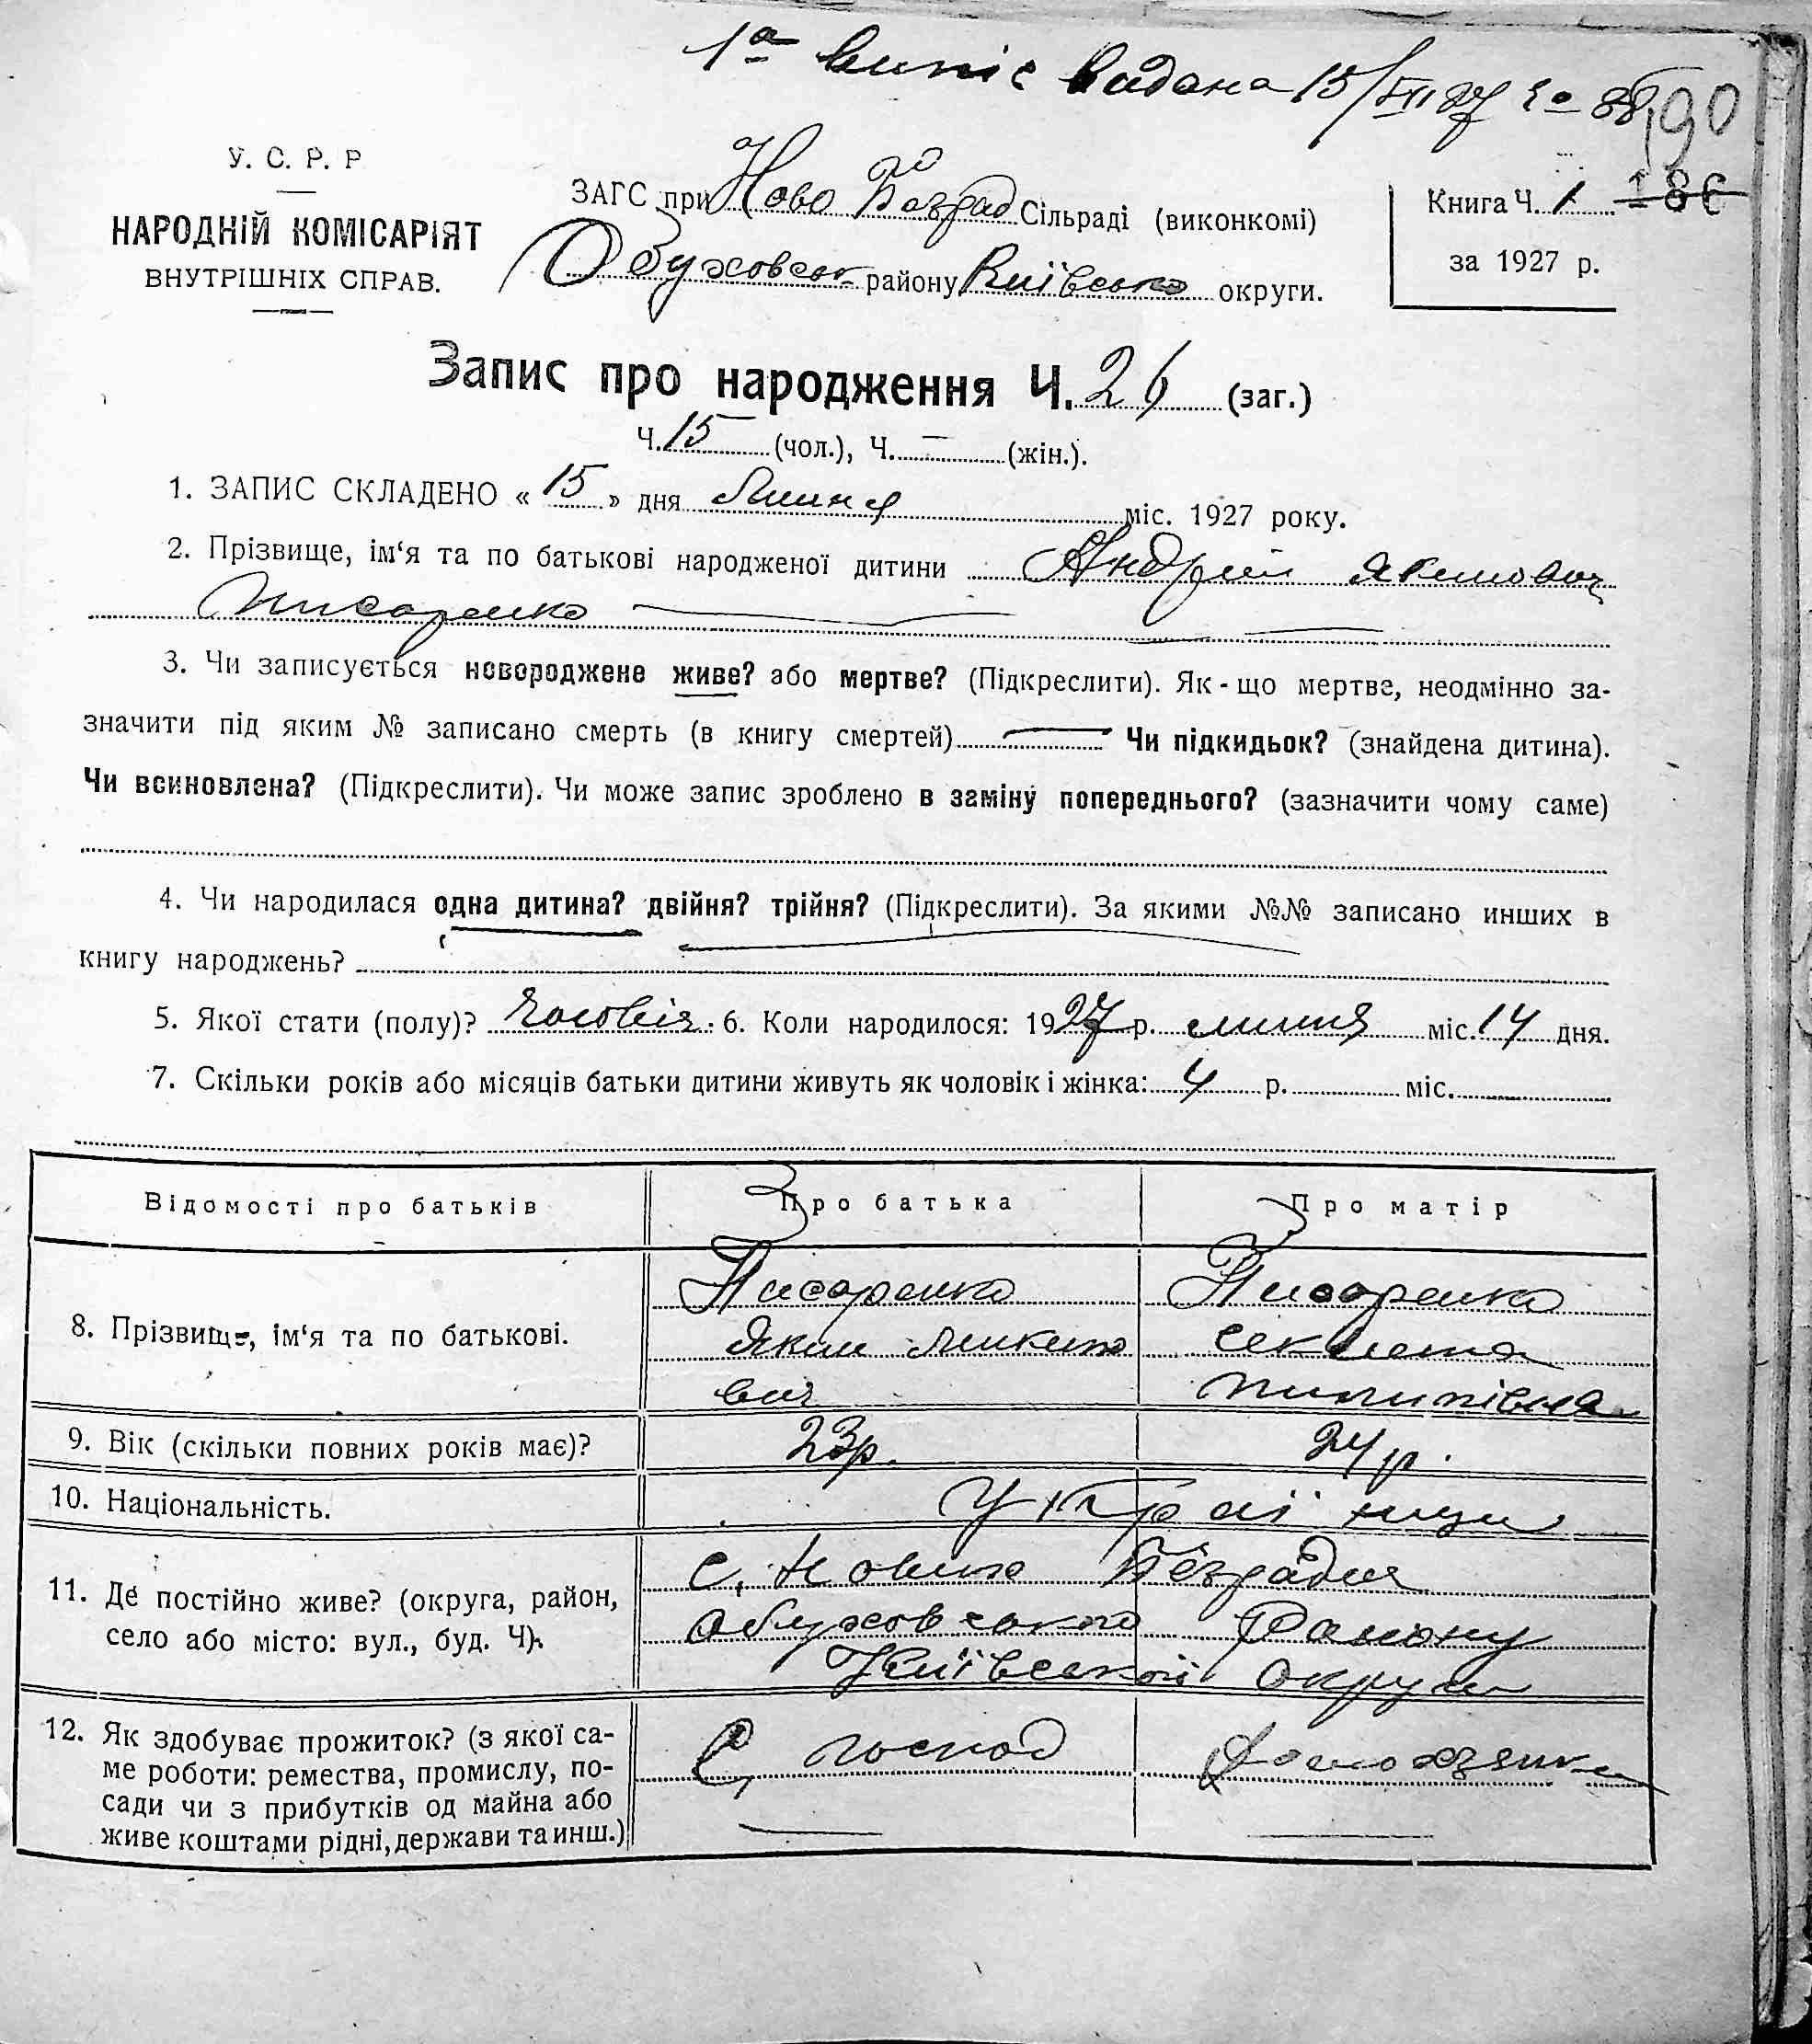 1ª випіс видана 15/VII 27
190
У. С. Р. Р
НАРОДНІЙ КОМІСАРІЯТ
ВНУТРІШНІХ СПРАВ.
ЗАГС при Ново Безрад Сільраді (виконкомі)
Обуховськ району Київсько округи.
Книга Ч. 1 186
за 1927 р.
Запис про народження Ч. 26 (заг.)
Ч. 15 (чол.), Ч. — (жін.).
1. ЗАПИС СКЛАДЕНО « 15 » дня Липня міс. 1927 року.
2. Прізвище, ім‘я та по батькові народженої дитини Андрій Якимович
Писаренко
3. Чи записується новороджене живе? або мертве? (Підкреслити). Як - що мертве, неодмінно за-
значити під яким № записано смерть (в книгу смертей) — Чи підкидьок? (знайдена дитина).
Чи всиновлена? (Підкреслити). Чи може запис зроблено в заміну попереднього? (зазначити чому саме)
4. Чи народилася одна дитина? двійня? трійня? (Підкреслити). За якими №№ записано инших в
книгу народжень?
5. Якої стати (полу)? 6. Коли народилося: 1927 р. липня міс. 14 дня.
7. Скільки років або місяців батьки дитини живуть як чоловік і жінка: 4 р. міс.
Відомості про батьків Про батька Про матір
8. Прізвище, ім‘я та по батькові.
Писаренко Писаренко
Яким Микито Секлета
вич Пилипівна
9. Вік (скільки повних років має)? 23р. 24р.
10. Національність. Українци
11. Де постійно живе? (округа, район,
село або місто: вул., буд. Ч).
С. Нових Безрадич
Обуховського Району
Київської Округи
12. Як здобуває прожиток? (з якої са-
ме роботи: ремества, промислу, по-
сади чи з прибутків од майна або
живе коштами рідні, держави та инш.)
С, господ Домохазяйка